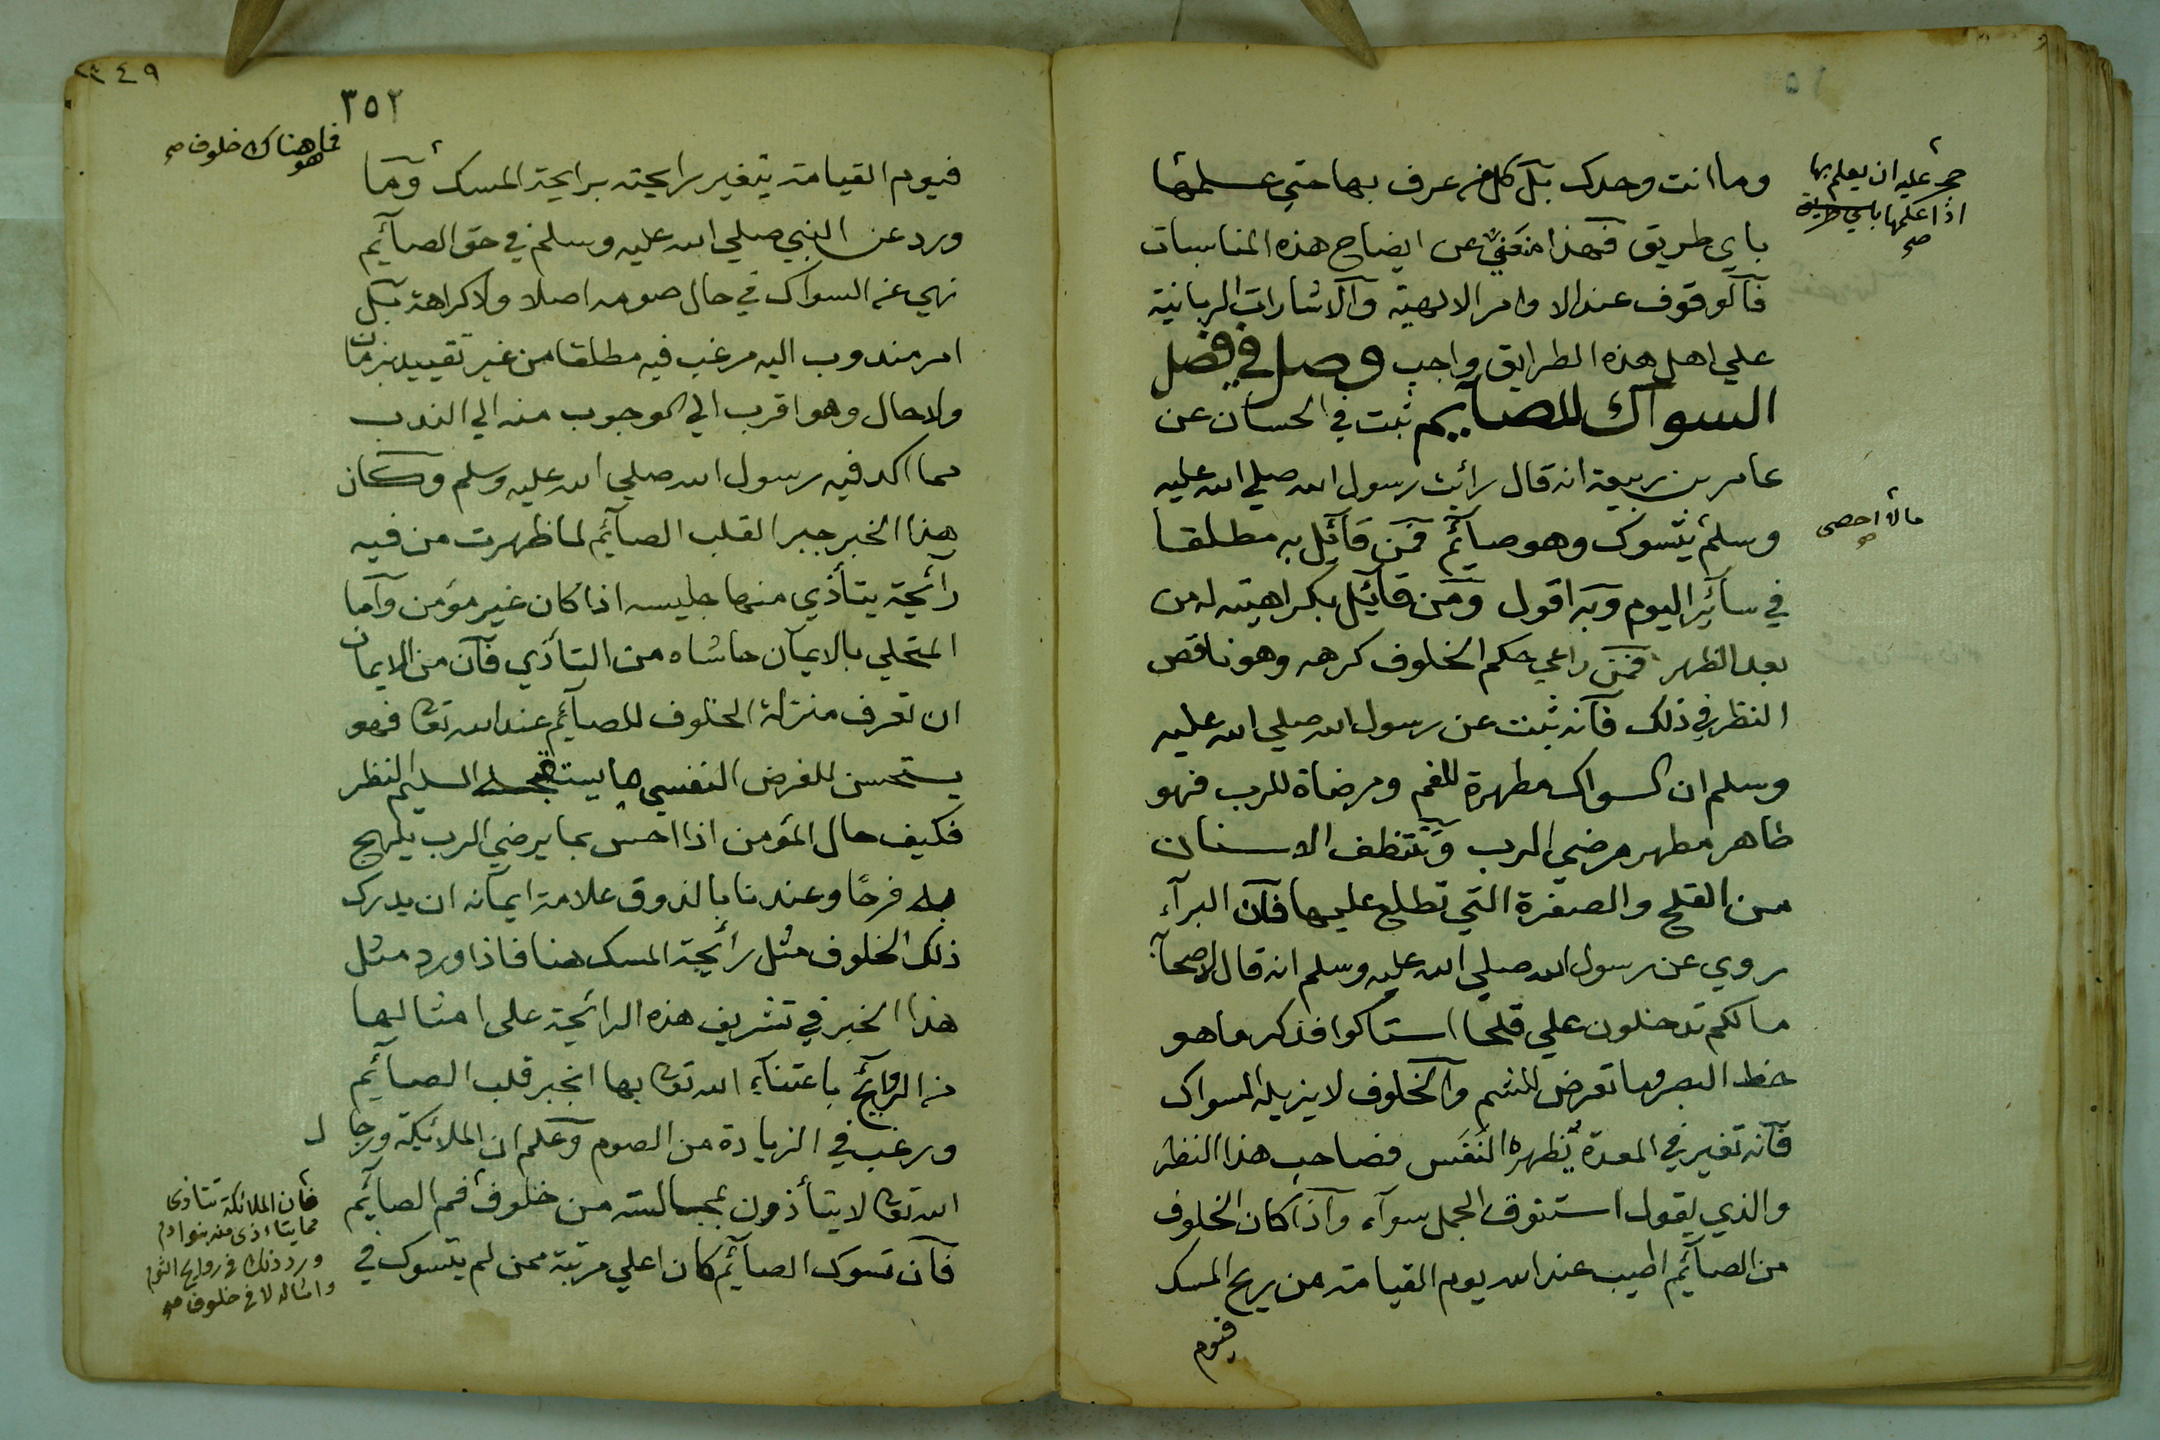 وما انت وحدك بل كل من عرف بها متي علمها
باي طريق فهذا منعني عن ايضاح هذه المناسبات
فالوقوف عند الاوامر الالهية والاشارات الربانية
علي اهل هذه الطرايق واجب وصل في فضل
السواك للصآيم ثبت في الحسان عن
عامر بن ربيعة انه قال رائت رسول الله صلي الله عليه
وسلم يتسوك وهو صائم فمن قائل به مطلقا
في سائر اليوم وبه اقول ومن قائل بكراهيته له من
بعد الظهر فمن راعي حكم الخلوف كرهه وهو ناقص
النظر في ذلك فانه ثبت عن رسول الله صلي الله عليه
وسلم ان السواك مطهرة للفم ومرضاة للرب فهو
طاهر مطهر مرضي الرب وتتنظف الاسنان
من القلح والصفرة التي تطلع عليها فان البرآء
روي عن رسول الله صلي الله عليه وسلم انه قال لاصحابه
مالكم تدخلون علي قلحا استاكوا فذكر ما هو
حظ البصر وما تعرض للشم والخلوف لا يزيله السواك
فانه تغير في المعدة يظهره النفس فصاحب هذا النظر
والذي يقول استنوق الجمل سوآء واذا كان الخلوف
من الصآئم اطيب عند الله يوم القيامة من ريح المسك
فيوم
عليه ان يعلم بها
اذا علمها باي طريق
صح
ما لا احصى
٣٤٩
٣٥٢
فما هناك خلوف صح
هو
فيوم القيامة يتغير رايحته برايحة المسك وما
ورد عن النبي صلي الله عليه وسلم في حق الصآئم
نهي عن السواك في حال صومه اصلا ولا كراهة بل
امر مندوب اليه مرغب فيه مطلقا من غير تقييد بزمان
ولا حال وهو اقرب الي الوجوب منه الي الندب
مما اكد فيه رسول الله صلي الله عليه وسلم وكان
هذا الخبر جبر القلب الصآئم لما ظهرت من فيه
رآئحة يتأذي منها جليسه اذا كان غير مؤمن واما
المتحلي بالايمان حاشاه من التأذي فان من الايمان
ان تعرف منزلة الخلوف للصآئم عند الله تعا فهو
يستحسن للغرض النفسي ما يستقبحه السليم النظر
فكيف حال المؤمن اذا احس بما يرضي الرب يلهج
به فرحًا وعندنا بالذوق علامة ايمانه ان يدرك
ذلك الخلوف مثل رائحة المسك هنا فاذا ورد مثل
هذا الخبر في تشريف هذه الرائحة على امثالها
من الروائح باعتنآء الله تعا بها انجبر قلب الصآئم
ورغب في الزيادة من الصوم وعلم ان الملائكة ورجال
الله تعا لا يتأذون بمجالسته من خلوف فم الصائم
فان تسوك الصآئم كان اعلي مرتبة ممن لم يتسوك في
فان الملائكة تتاذى
مما يتاذى منه بنوا ادم
ورد ذلك في روايح الثوم
وامثاله لا في خلوف صح